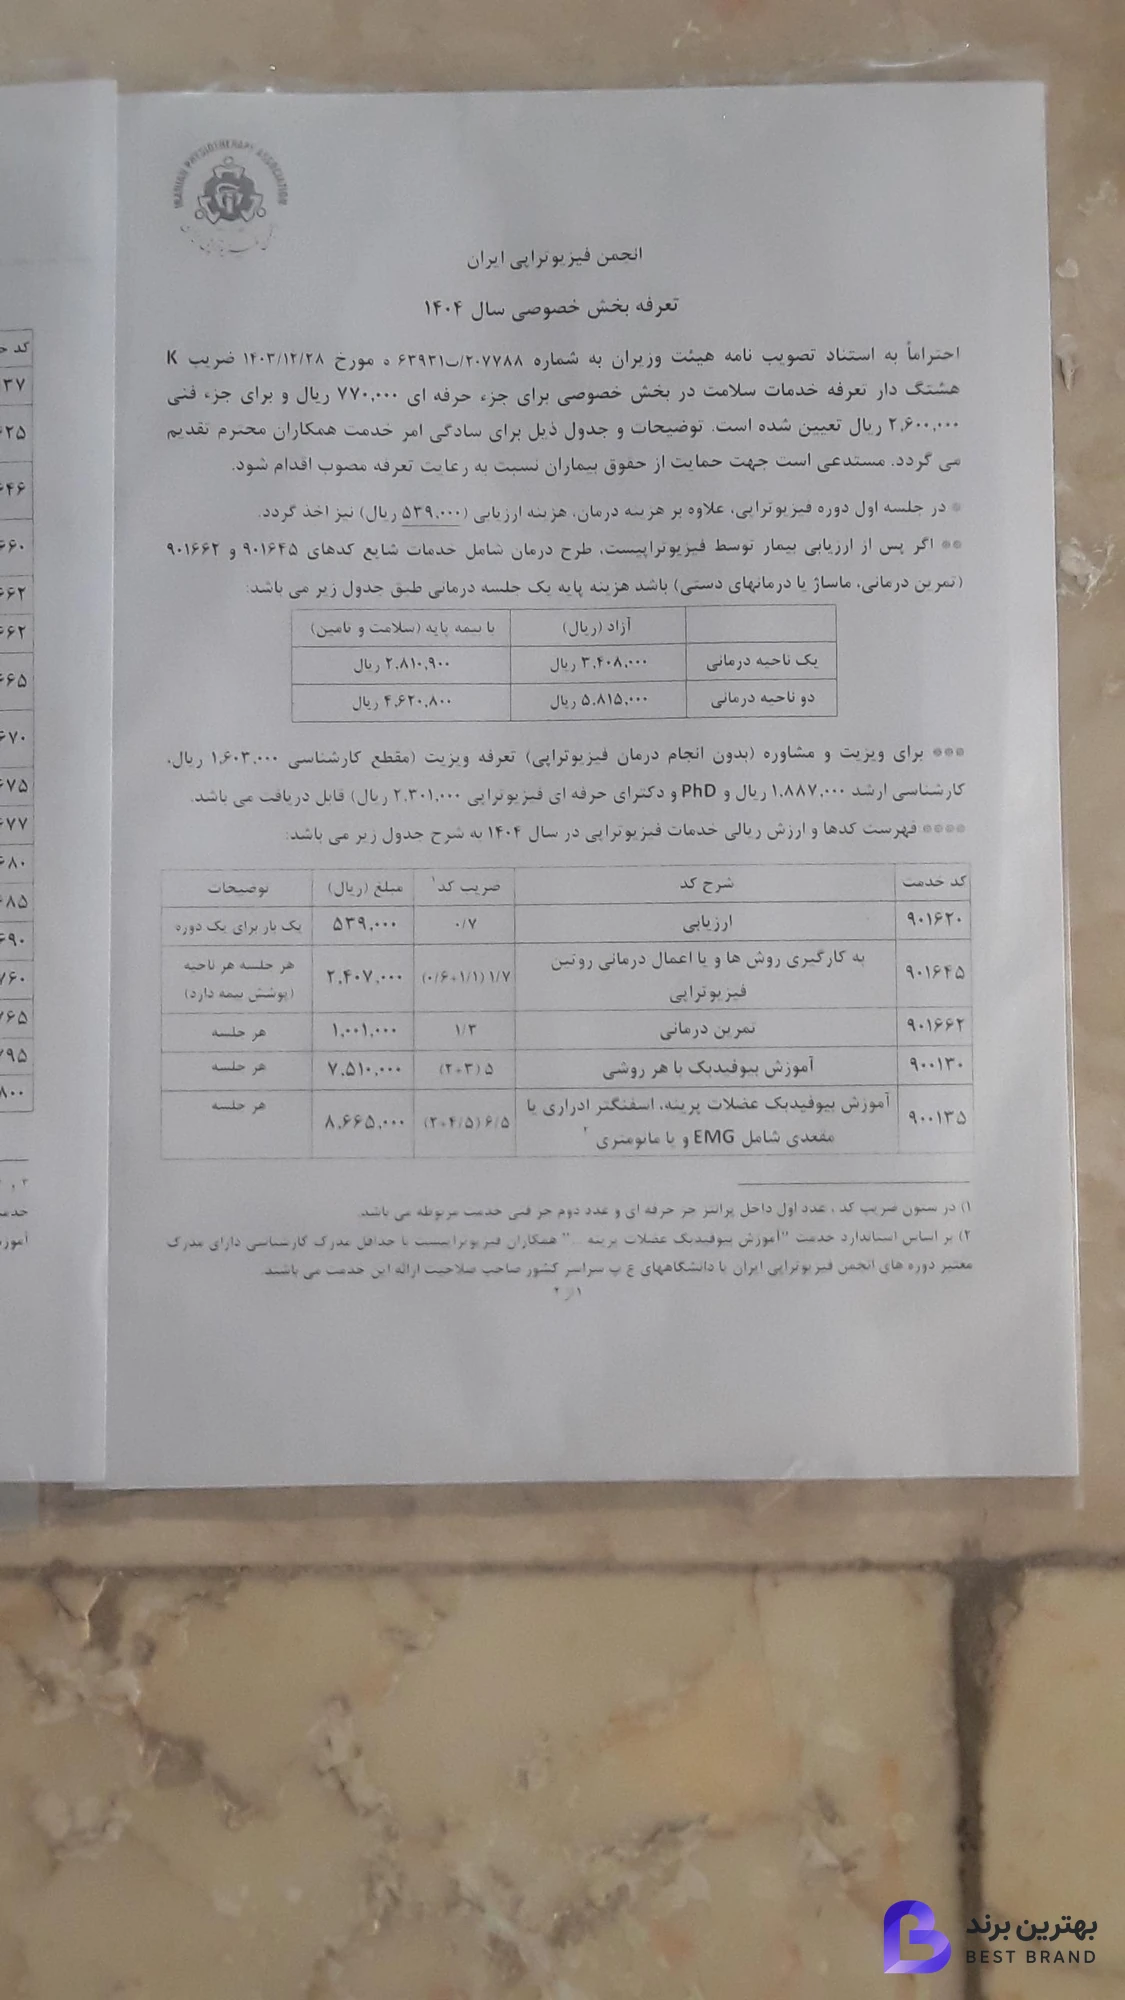 IRANIAN PHYSIOTHERAPY ASSOCIATION
انجمن فیزیوتراپی ایران
تعرفه بخش خصوصی سال ۱۴۰۴
احتراماً به استناد تصویب نامه هیئت وزیران به شماره ۲۰۷۷۸۸/ت۶۳۹۳۱ ه مورخ ۱۴۰۳/۱۲/۲۸ ضریب K
هشتگ دار تعرفه خدمات سلامت در بخش خصوصی برای جزء حرفه ای ۷۷۰,۰۰۰ ریال و برای جزء فنی
۲,۶۰۰,۰۰۰ ریال تعیین شده است. توضیحات و جدول ذیل برای سادگی امر خدمت همکاران محترم تقدیم
می گردد. مستدعی است جهت حمایت از حقوق بیماران نسبت به رعایت تعرفه مصوب اقدام شود.
* در جلسه اول دوره فیزیوتراپی، علاوه بر هزینه درمان، هزینه ارزیابی (۵۳۹,۰۰۰ ریال) نیز اخذ گردد.
** اگر پس از ارزیابی بیمار توسط فیزیوتراپیست، طرح درمان شامل خدمات شایع کدهای ۹۰۱۶۴۵ و ۹۰۱۶۶۲
(تمرین درمانی، ماساژ یا درمانهای دستی) باشد هزینه پایه یک جلسه درمانی طبق جدول زیر می باشد:
آزاد (ریال) با بیمه پایه (سلامت و تامین)
یک ناحیه درمانی ۳,۴۰۸,۰۰۰ ریال ۲,۸۱۰,۹۰۰ ریال
دو ناحیه درمانی ۵,۸۱۵,۰۰۰ ریال ۴,۶۲۰,۸۰۰ ریال
*** برای ویزیت و مشاوره (بدون انجام درمان فیزیوتراپی) تعرفه ویزیت (مقطع کارشناسی ۱,۶۰۳,۰۰۰ ریال،
کارشناسی ارشد ۱,۸۸۷,۰۰۰ ریال و PhD و دکترای حرفه ای فیزیوتراپی ۲,۳۰۱,۰۰۰ ریال) قابل دریافت می باشد.
**** فهرست کدها و ارزش ریالی خدمات فیزیوتراپی در سال ۱۴۰۴ به شرح جدول زیر می باشد:
کد خدمت شرح کد ضریب کد۱ مبلغ (ریال) توضیحات
۹۰۱۶۲۰ ارزیابی ۰/۷ ۵۳۹,۰۰۰ یک بار برای یک دوره
۹۰۱۶۴۵ به کارگیری روش ها و یا اعمال درمانی روتین فیزیوتراپی ۱/۷ (۰/۶+۱/۱) ۲,۴۰۷,۰۰۰ هر جلسه هر ناحیه (پوشش بیمه دارد)
۹۰۱۶۶۲ تمرین درمانی ۱/۳ ۱,۰۰۱,۰۰۰ هر جلسه
۹۰۰۱۳۰ آموزش بیوفیدبک با هر روشی ۵ (۲+۳) ۷,۵۱۰,۰۰۰ هر جلسه
۹۰۰۱۳۵ آموزش بیوفیدبک عضلات پرینه، اسفنگتر ادراری یا مقعدی شامل EMG و یا مانومتری ۲ ۶/۵ (۲+۴/۵) ۸,۶۶۵,۰۰۰ هر جلسه
۱) در ستون ضریب کد ، عدد اول داخل پرانتز جز حرفه ای و عدد دوم جز فنی خدمت مربوطه می باشد.
۲) بر اساس استاندارد خدمت "آموزش بیوفیدبک عضلات پرینه ..." همکاران فیزیوتراپیست با حداقل مدرک کارشناسی دارای مدرک
معتبر دوره های انجمن فیزیوتراپی ایران یا دانشگاههای ع پ سراسر کشور صاحب صلاحیت ارائه این خدمت می باشند.
۱ از ۲
بهترین برند
BEST BRAND